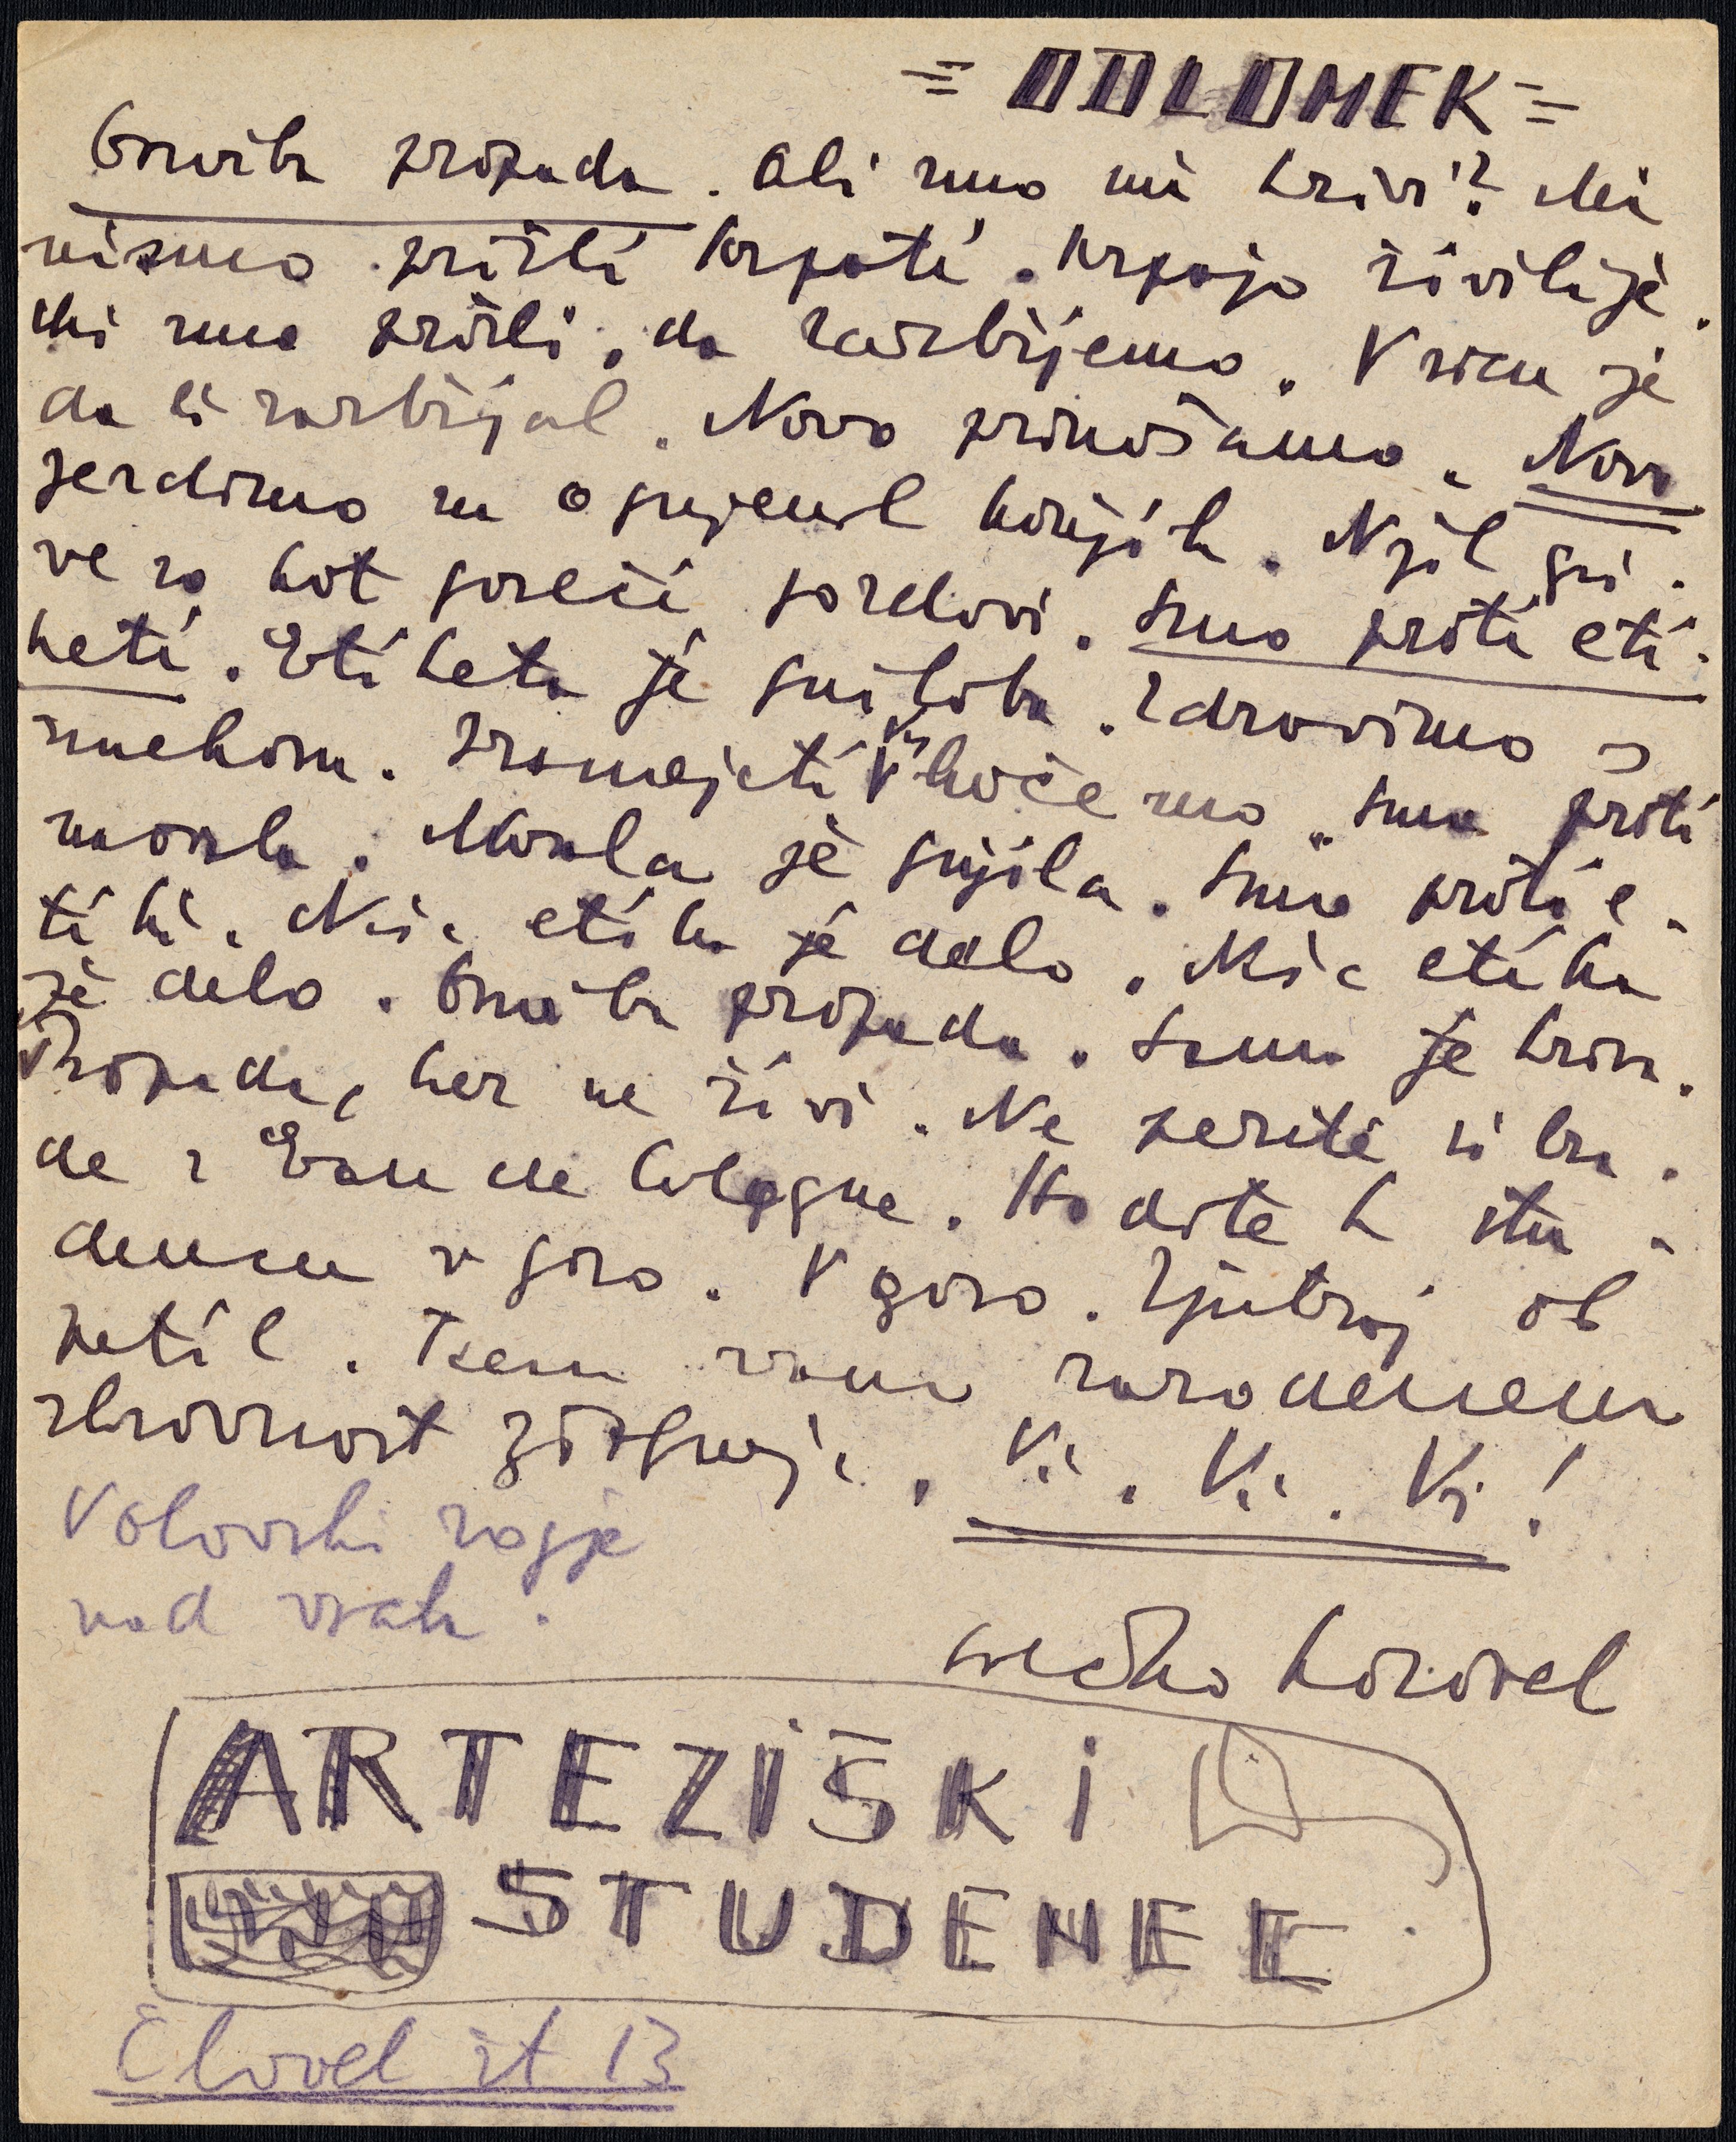 = ODLOMEK =
Družba propada. Ali smo mi krivi? Mi
nismo prišli krpati. Krpajo šivilje.
Mi smo prišli, da razbijemo. je
da bi razbijal. Novo prinašamo. Novi
jezdimo na ognjenih konjih. Njih gri-
ve so kot goreči gozdovi. Smo proti eti-
keti. Etiketa je gniloba. Zdravimo s
smehom. Vas hočemo. Smo proti
morali. Morala je gnjila. Smo proti e-
tiki. Naša etika je delo. Naša etika
je delo. Družba propada. Sama je kriva.
Propada, ker ne živi. Ne perite si bra-
de z Eau de Cologne. Hodite k stu-
dencu v goro. V goro. Zjutraj ob
petih. vam razodenem
skrivnost . Vi. Vi. Vi!
Volovski rogje
nad
Srečko Kosovel
ARTEZIŠKI
STUDENEC
Človek št 13